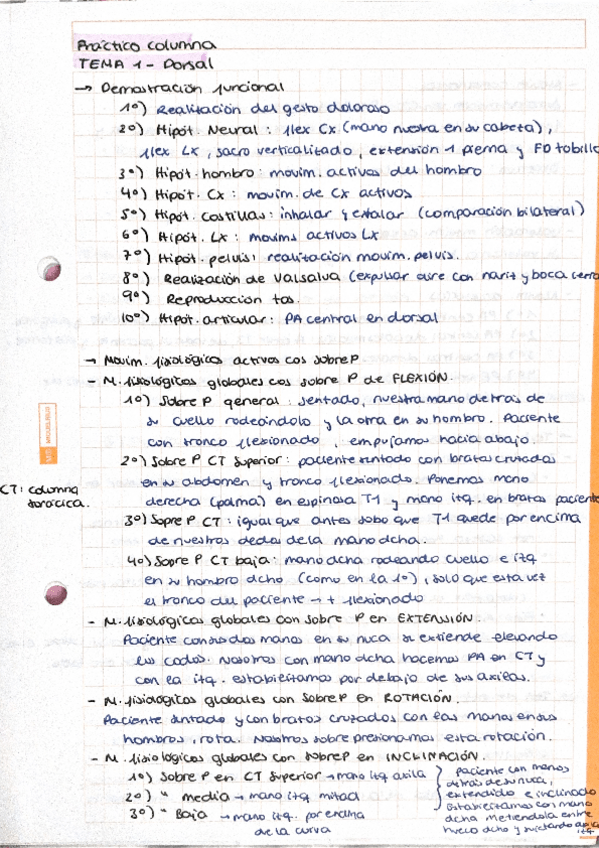 Práctico columna
TEMA 1 - Dorsal
→ Demostración funcional
1º) Realización del gesto doloroso
2º) Hipót. Neural : flex Cx (mano nuestra en su cabeza),
flex Lx, sacro verticalizado, extensión 1 pierna y FD tobillo
3º) Hipót. hombro : movim. activos del hombro
4º) Hipót. Cx : movim. de Cx activos
5º) Hipót. costillas : inhalar y exhalar (comparación bilateral)
6º) Hipót. Lx : movims activos Lx
7º) Hipót. pelvis : realización movim. pelvis.
8º) Realización de valsalva (expulsar aire con nariz y boca cerra
9º) Reproducción tos.
10º) Hipót. articular : PA central en dorsal
→ Movim. fisiológicos activos cos sobre P
- M. fisiológicos globales cos sobre P de FLEXIÓN.
1º) Sobre P general : sentado, nuestra mano detrás de
su cuello rodeándolo y la otra en su hombro. Paciente
con tronco flexionado, empujamos hacia abajo.
2º) Sobre P CT superior : paciente sentado con brazos cruzados
en su abdomen y tronco flexionado. Ponemos mano
derecha (palma) en espinosa T1 y mano izq. en brazos paciente
CT: columna
torácica.
3º) Sopre P CT : igual que antes solo que T1 quede por encima
de nuestros dedos de la mano dcha.
4º) Sopre P CT baja : mano dcha rodeando cuello e izq
en su hombro dcho (como en la 1º), solo que esta vez
el tronco del paciente → + flexionado
- M. fisiológicos globales con sobre P en EXTENSIÓN.
Paciente con sus dos manos en su nuca se extiende elevando
los codos. Nosotros con mano dcha hacemos PA en CT y
con la izq. estabilizamos por debajo de sus axilas.
- M. fisiológicos globales con sobre P en ROTACIÓN.
Paciente sentado y con brazos cruzados con las manos en sus
hombros, rota. Nosotros sobre presionamos esta rotación.
- M. fisiológicos globales con sobre P en INCLINACIÓN.
1º) Sobre P en CT superior → mano izq axila
2º) " media → mano izq mitad
3º) " Baja → mano izq. por encima
de la curva
paciente con manos
detrás de su nuca,
extendido e inclinado
Estabilizamos con mano
dcha metiendola entre
hueco dcho y
izq